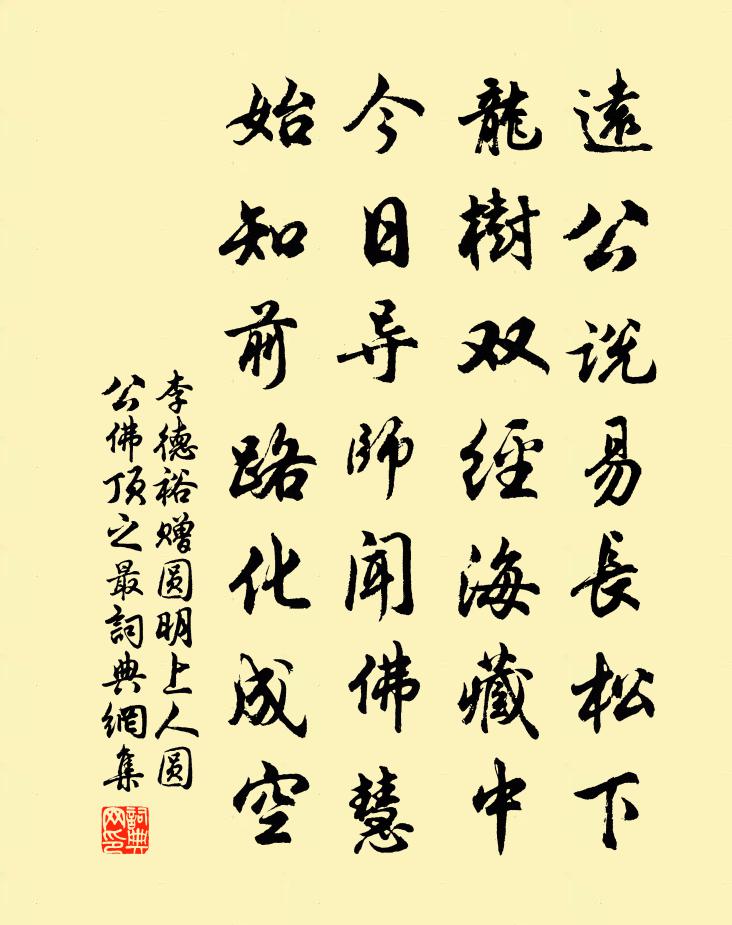 遠公说易長松下
龍樹双經海藏中
今日导師闻佛慧
始知前路化成空
李德裕赠圆明上人圆
公佛顶之最詞典網集
詞典网印